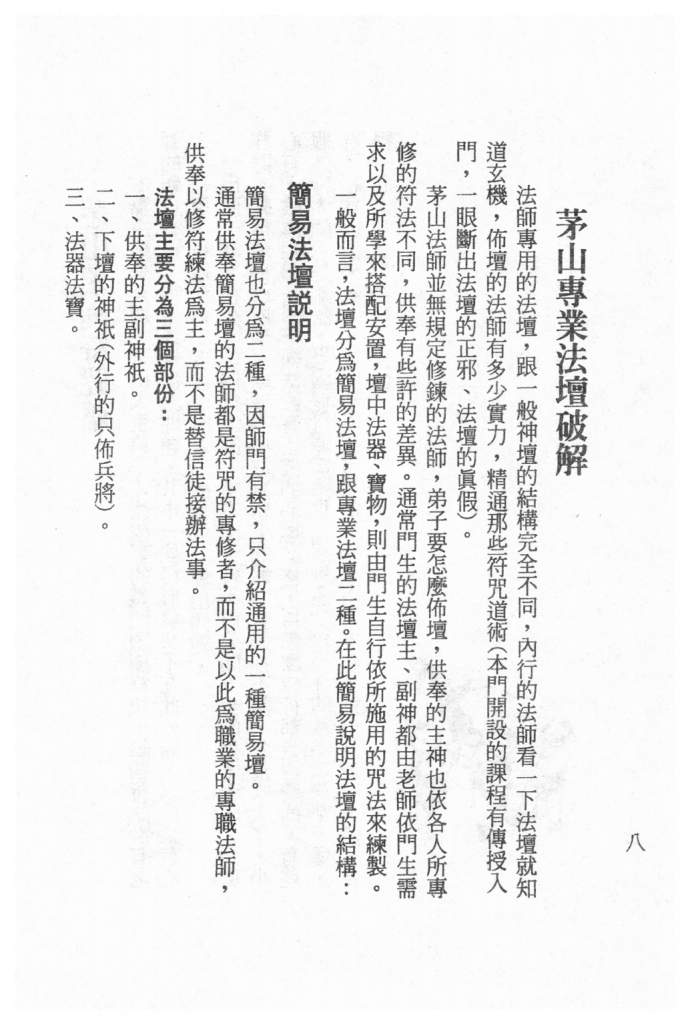 八
茅山專業法壇破解
法師專用的法壇，跟一般神壇的結構完全不同，內行的法師看一下法壇就知
道玄機，佈壇的法師有多少實力，精通那些符咒道術（本門開設的課程有傳授入
門，一眼斷出法壇的正邪、法壇的眞假）。
茅山法師並無規定修鍊的法師，弟子要怎麼佈壇，供奉的主神也依各人所專
修的符法不同，供奉有些許的差異。通常門生的法壇主、副神都由老師依門生需
求以及所學來搭配安置，壇中法器、寶物，則由門生自行依所施用的咒法來練製。
一般而言，法壇分爲簡易法壇，跟專業法壇二種。在此簡易說明法壇的結構：
簡易法壇説明
簡易法壇也分爲二種，因師門有禁，只介紹通用的一種簡易壇。
通常供奉簡易壇的法師都是符咒的專修者，而不是以此爲職業的專職法師，
供奉以修符練法爲主，而不是替信徒接辦法事。
法壇主要分為三個部份：
一、供奉的主副神祇。
二、下壇的神祇（外行的只佈兵將）。
三、法器法寶。